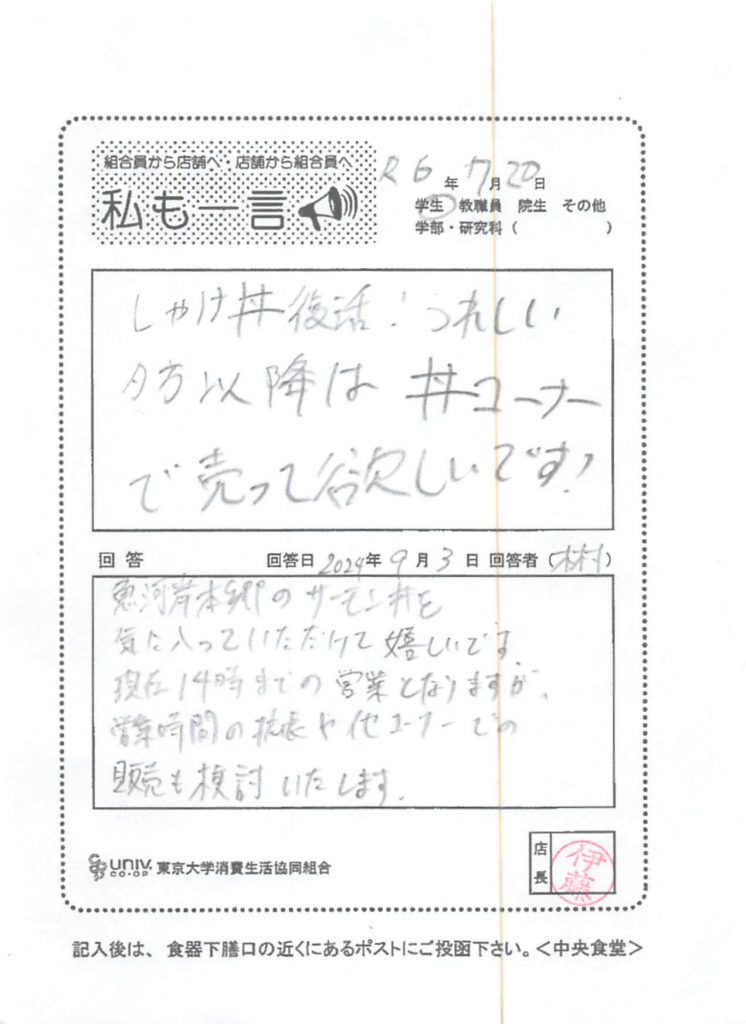 組合員から店舗へ・店舗から組合員へ
私も一言
R6年7月20日
学生 教職員 院生 その他
学部・研究科( )
しゃけ丼復活!うれしい
夕方以降は丼コーナー
で売って欲しいです!
回答 回答日 2024年9月3日 回答者(木村)
魚河岸本郷のサーモン丼を
気に入っていただけて嬉しいです
現在14時までの営業となりますが、
営業時間の拡張や他コーナーでの
販売も検討いたします。
UNIV. CO-OP 東京大学消費生活協同組合
店長 伊藤
記入後は、食器下膳口の近くにあるポストにご投函下さい。<中央食堂>